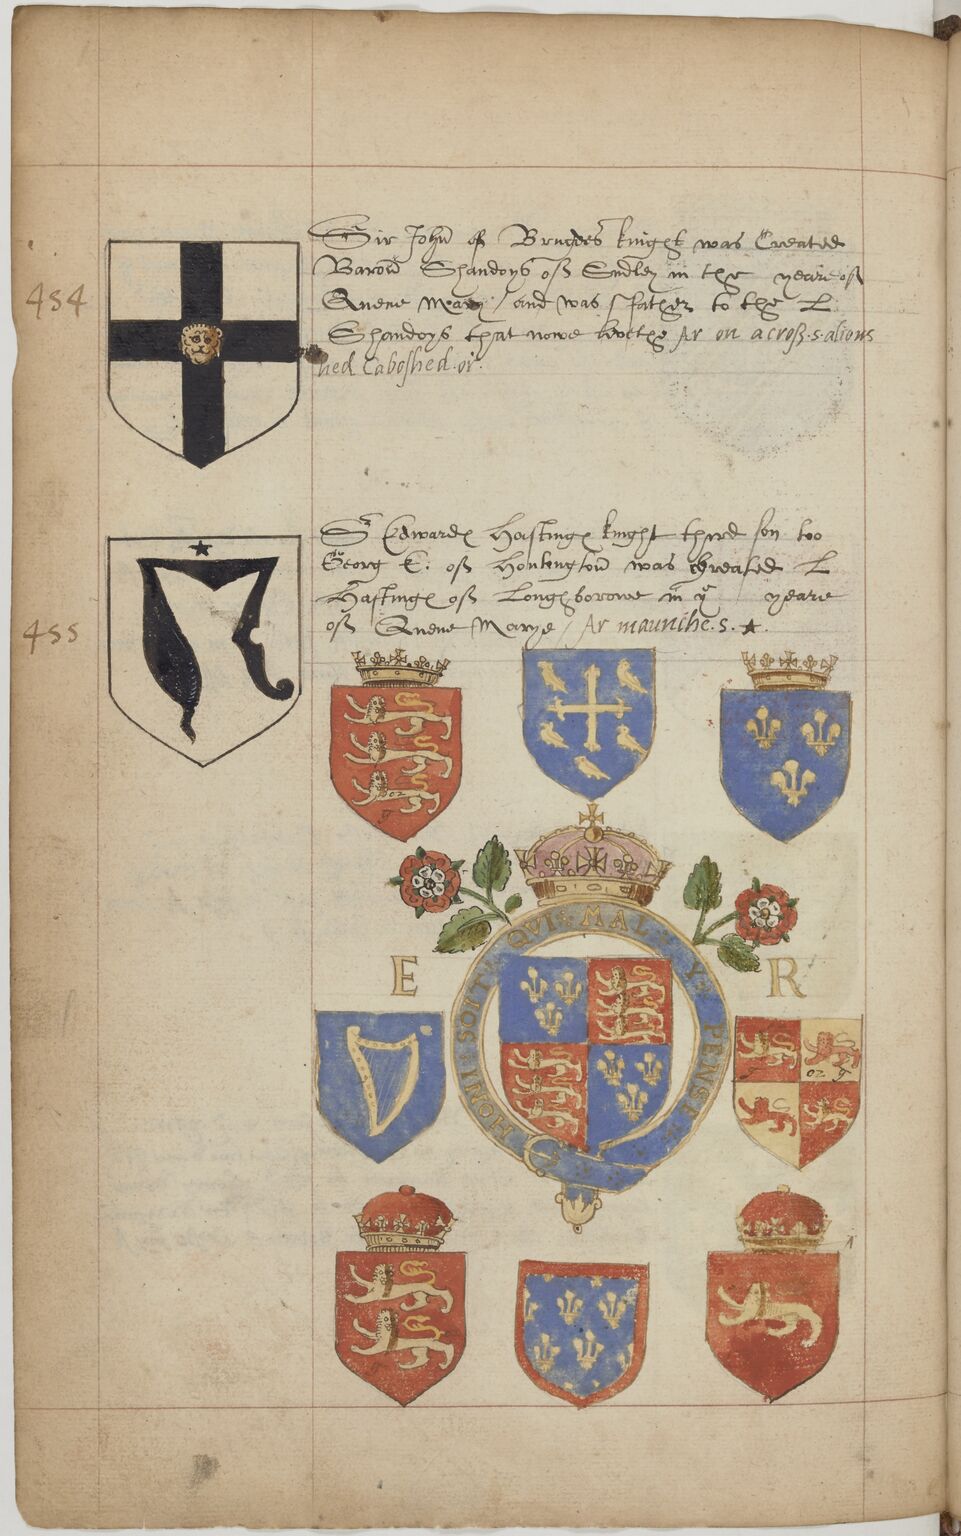 454
Sir John of Brugges knight was Created
Baron Shandoys off Sudley in the yeare off
Quene Mary / and was father to the L
Shandoys that nowe Ar on a cross .s. a lions
hed Caboshed .or.
455
Sr Edward Hastinges knight third son too
Georg E. off Hontengton was Created L
Hastinges off Longhborowe in ye yeare
off Quene Marye / Ar maunche .s.
or
g
E R
HONI SOIT QVI MAL Y PENSE
or g